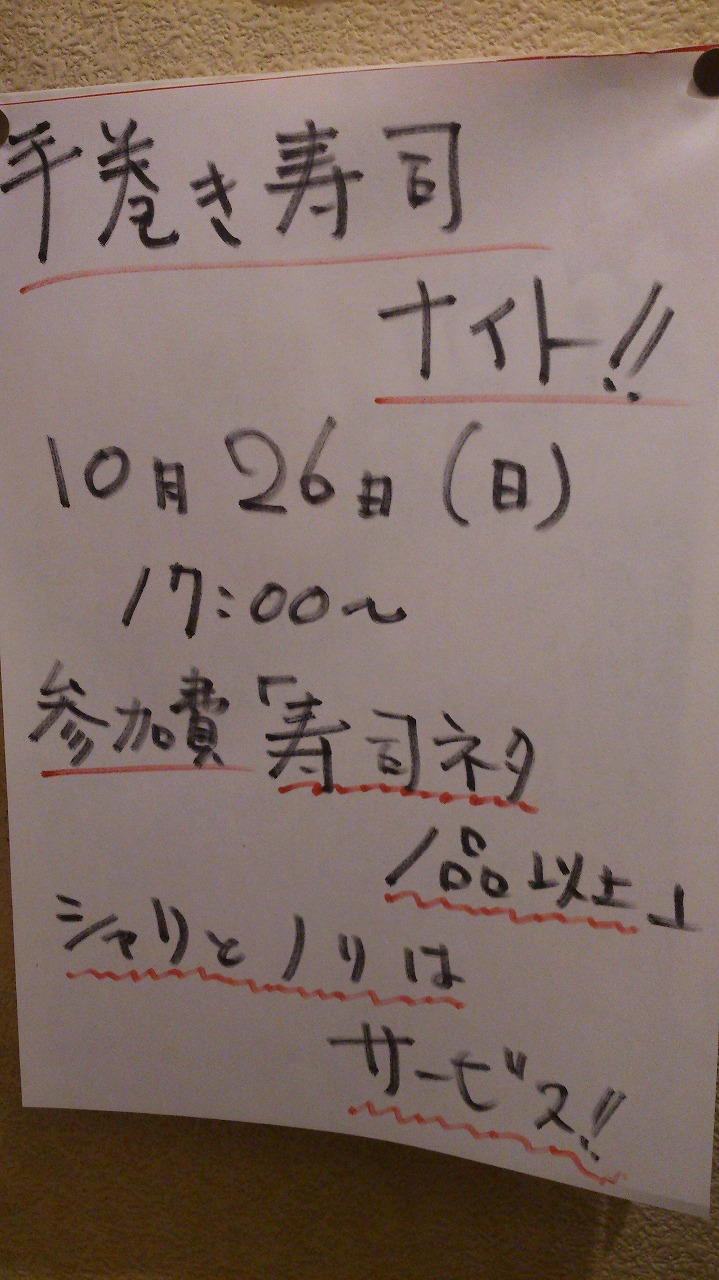 手巻き寿司
ナイト!!
10月26日(日)
17:00～
参加費「寿司ネタ
1品以上」
シャリとノリは
サービス!!